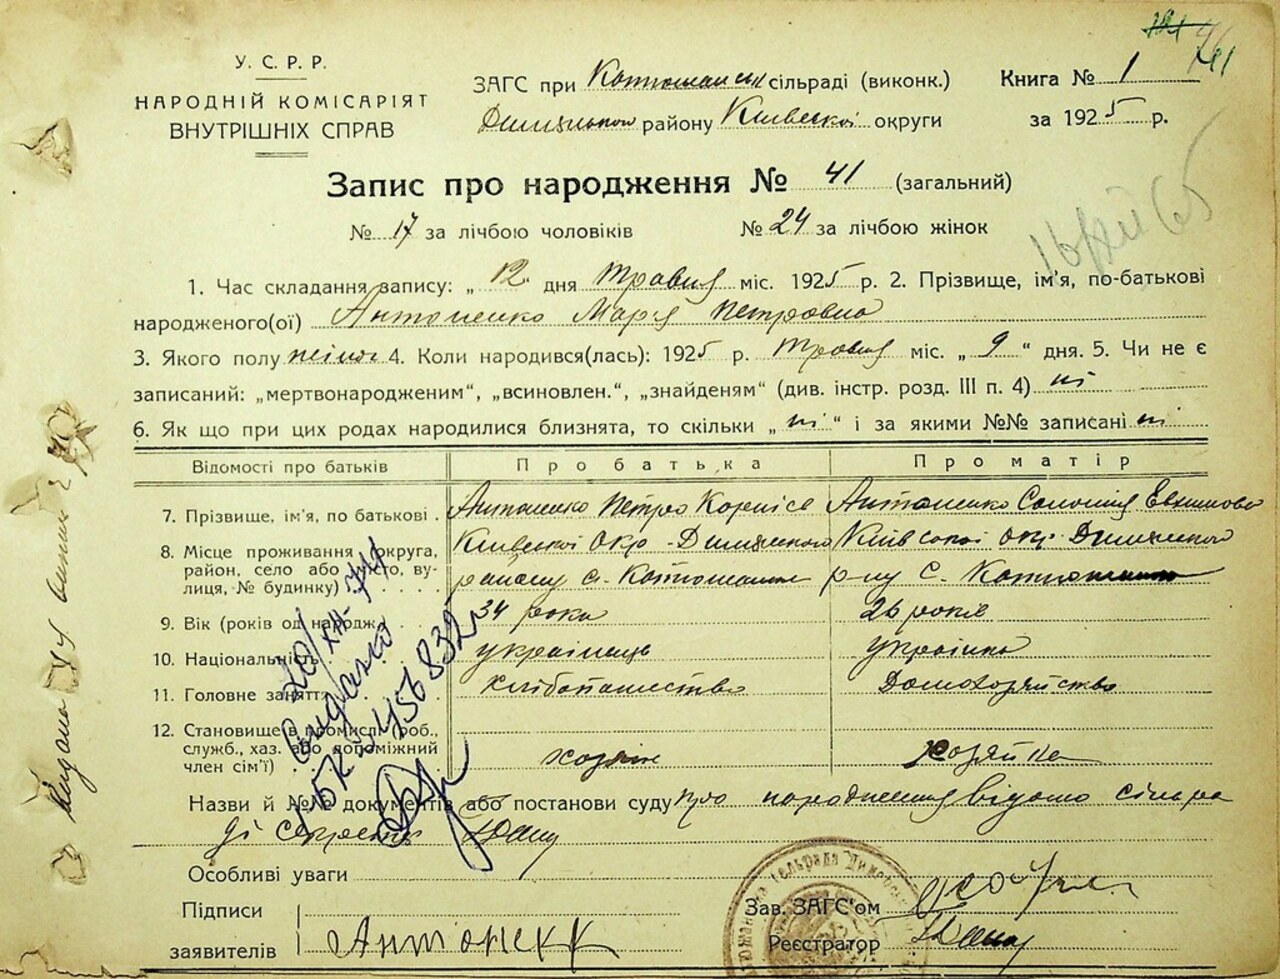 У. С. Р. Р.
НАРОДНІЙ КОМІСАРІЯТ
ВНУТРІШНІХ СПРАВ
ЗАГС при Котюшанськ сільраді (виконк.)
Димерського району Київської округи
Книга № 1
за 1925 р.
41
Запис про народження № 41 (загальний)
№ 17 за лічбою чоловіків № 24 за лічбою жінок
1. Час складання запису: „ 12 " дня травня міс. 1925 р. 2. Прізвище, ім'я, по-батькові
народженого(ої) Антоненко Марія Петровна
3. Якого полу жіноч 4. Коли народився(лась): 1925 р. травня міс. „ 9 " дня. 5. Чи не є
записаний: „мертвонародженим", „всиновлен.", „знайденям" (див. інстр. розд. III п. 4) ні
6. Як що при цих родах народилися близнята, то скільки „ ні " і за якими №№ записані ні
Відомості про батьків Про батька Про матір
7. Прізвище, ім'я, по батькові . Антоненко Петро Корнієв Антоненко Соломия Евхимовна
8. Місце проживання (округа, район, село або місто, вулиця, № будинку) Київської Окр. Димерського Київської окр. Димерського
району с. р-ну с.
9. Вік (років од народж.) 34 роки 26 років
10. Національність українець українка
11. Головне заняття хлібопашество Домохозяйство
12. Становище в промислі (роб.,
служб., хаз. або допоміжний
член сім'ї) хозяїн хозяйка
Назви й №№ документів або постанови суду про народження відомо сільра
ді секретарь
Особливі уваги
Підписи
заявителів Антоненко
Зав. ЗАГС'ом
Реєстратор